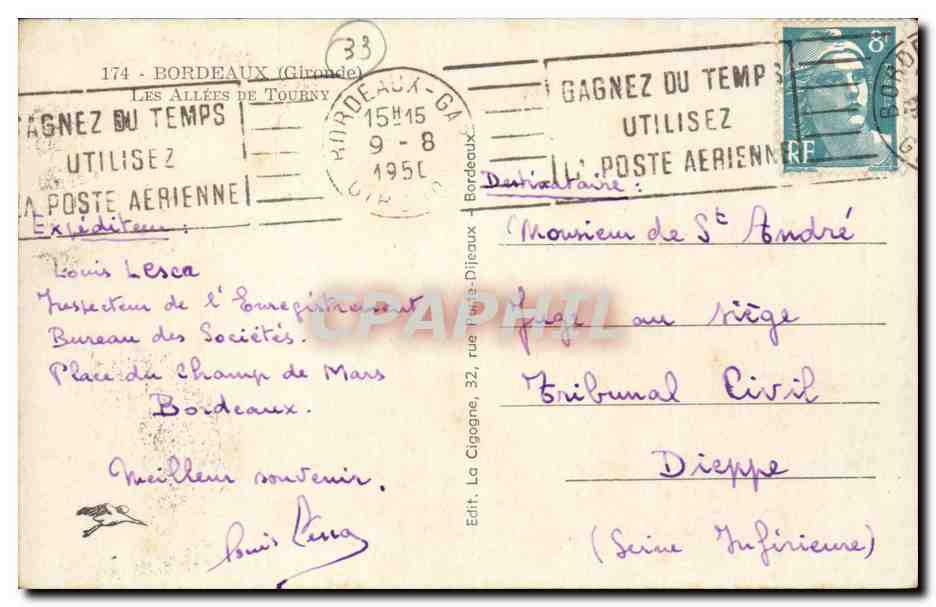 33
174 - BORDEAUX (Gironde)
LES ALLÉES DE TOURNY
AGNEZ DU TEMPS
UTILISEZ
LA POSTE AERIENNE
BORDEAUX-GA
15H15
9 - 8
1950
GIR
GAGNEZ DU TEMPS
UTILISEZ
LA POSTE AERIENNE
8F
RF
BORDE
Expéditeur :
Louis Lesca
Inspecteur de l'Enregistrement
Bureau des Sociétés.
Place du Champ de Mars
Bordeaux.
Meilleur souvenir.
Louis Lesca
Edit. La Cigogne, 32, rue Porte-Dijeaux - Bordeaux
Destinataire :
Monsieur de St André
Juge au siège
Tribunal Civil
Dieppe
(Seine Inférieure)
CPAPHIL